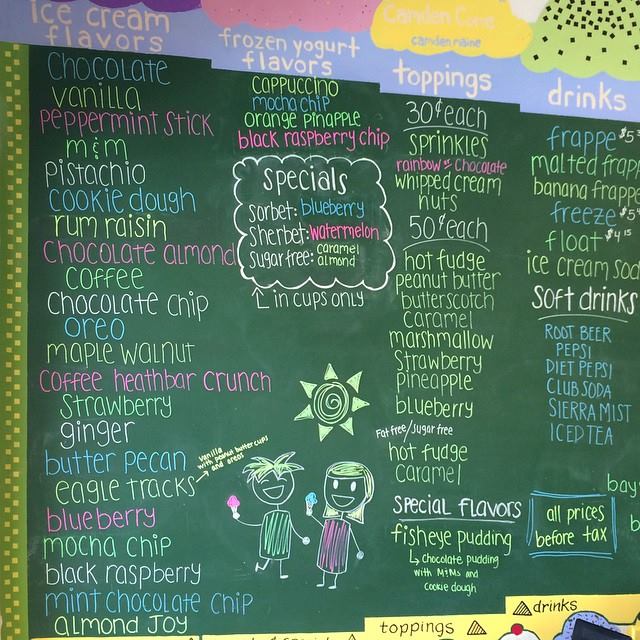 ice cream
flavors
Chocolate
vanilla
peppermint stick
m&m
pistachio
cookie dough
rum raisin
Chocolate almond
coffee
Chocolate chip
oreo
maple walnut
Coffee heathbar crunch
Strawberry
ginger
butter pecan
eagle tracks
vanilla
with peanut butter cups
and oreos
blueberry
mocha chip
black raspberry
mint chocolate chip
almond Joy
frozen yogurt
flavors
cappuccino
mocha chip
orange pinapple
black raspberry chip
Specials
Sorbet: blueberry
Sherbet: watermelon
Sugar free: caramel
almond
in cups only
Camden Cone
camden maine
toppings
30¢ each
sprinkles
rainbow or Chocolate
whipped cream
nuts
50¢ each
hot fudge
peanut butter
butterscotch
caramel
marshmallow
Strawberry
pineapple
blueberry
Fat free/Sugar free
hot fudge
caramel
Special Flavors
fisheye pudding
chocolate pudding
with M&Ms and
cookie dough
drinks
frappe $5
malted frapp
banana frappe
freeze $5
float $4.15
ice cream sod
Soft drinks
ROOT BEER
PEPSI
DIET PEPSI
CLUB SODA
SIERRA MIST
ICED TEA
bay
b
all prices
before tax
toppings
drinks